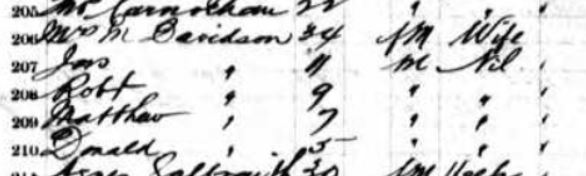 205 Mr Carnochan 22 " " "
206 Mrs M Davidson 34 fM Wife
207 Jas " 11 M Nil "
208 Robt " 9 " " "
209 Matthew " 7 " " "
210 Donald " 5 " " "
Galbraith 30 fM